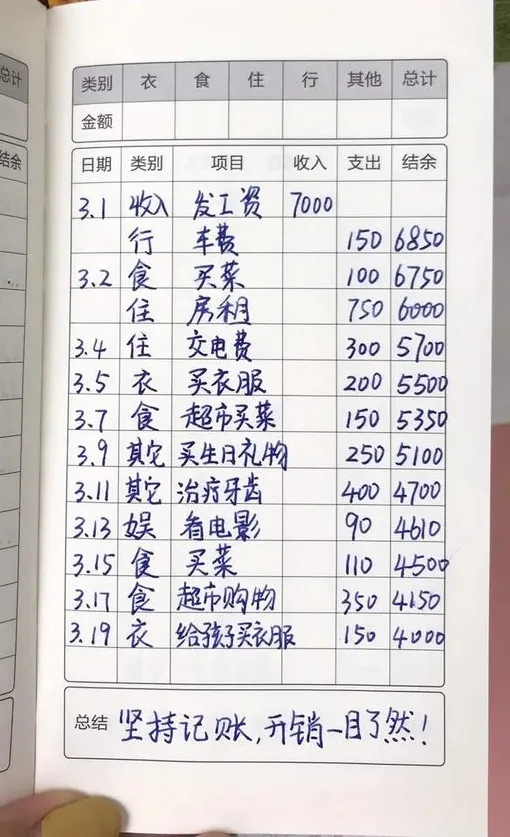 总计
结余
类别 衣 食 住 行 其他 总计
金额
日期 类别 项目 收入 支出 结余
3.1 收入 发工资 7000
行 车费 150 6850
3.2 食 买菜 100 6750
住 房租 750 6000
3.4 住 交电费 300 5700
3.5 衣 买衣服 200 5500
3.7 食 超市买菜 150 5350
3.9 其它 买生日礼物 250 5100
3.11 其它 治疗牙齿 400 4700
3.13 娱 看电影 90 4610
3.15 食 买菜 110 4500
3.17 食 超市购物 350 4150
3.19 衣 给孩子买衣服 150 4000
总结 坚持记账,开销一目了然!